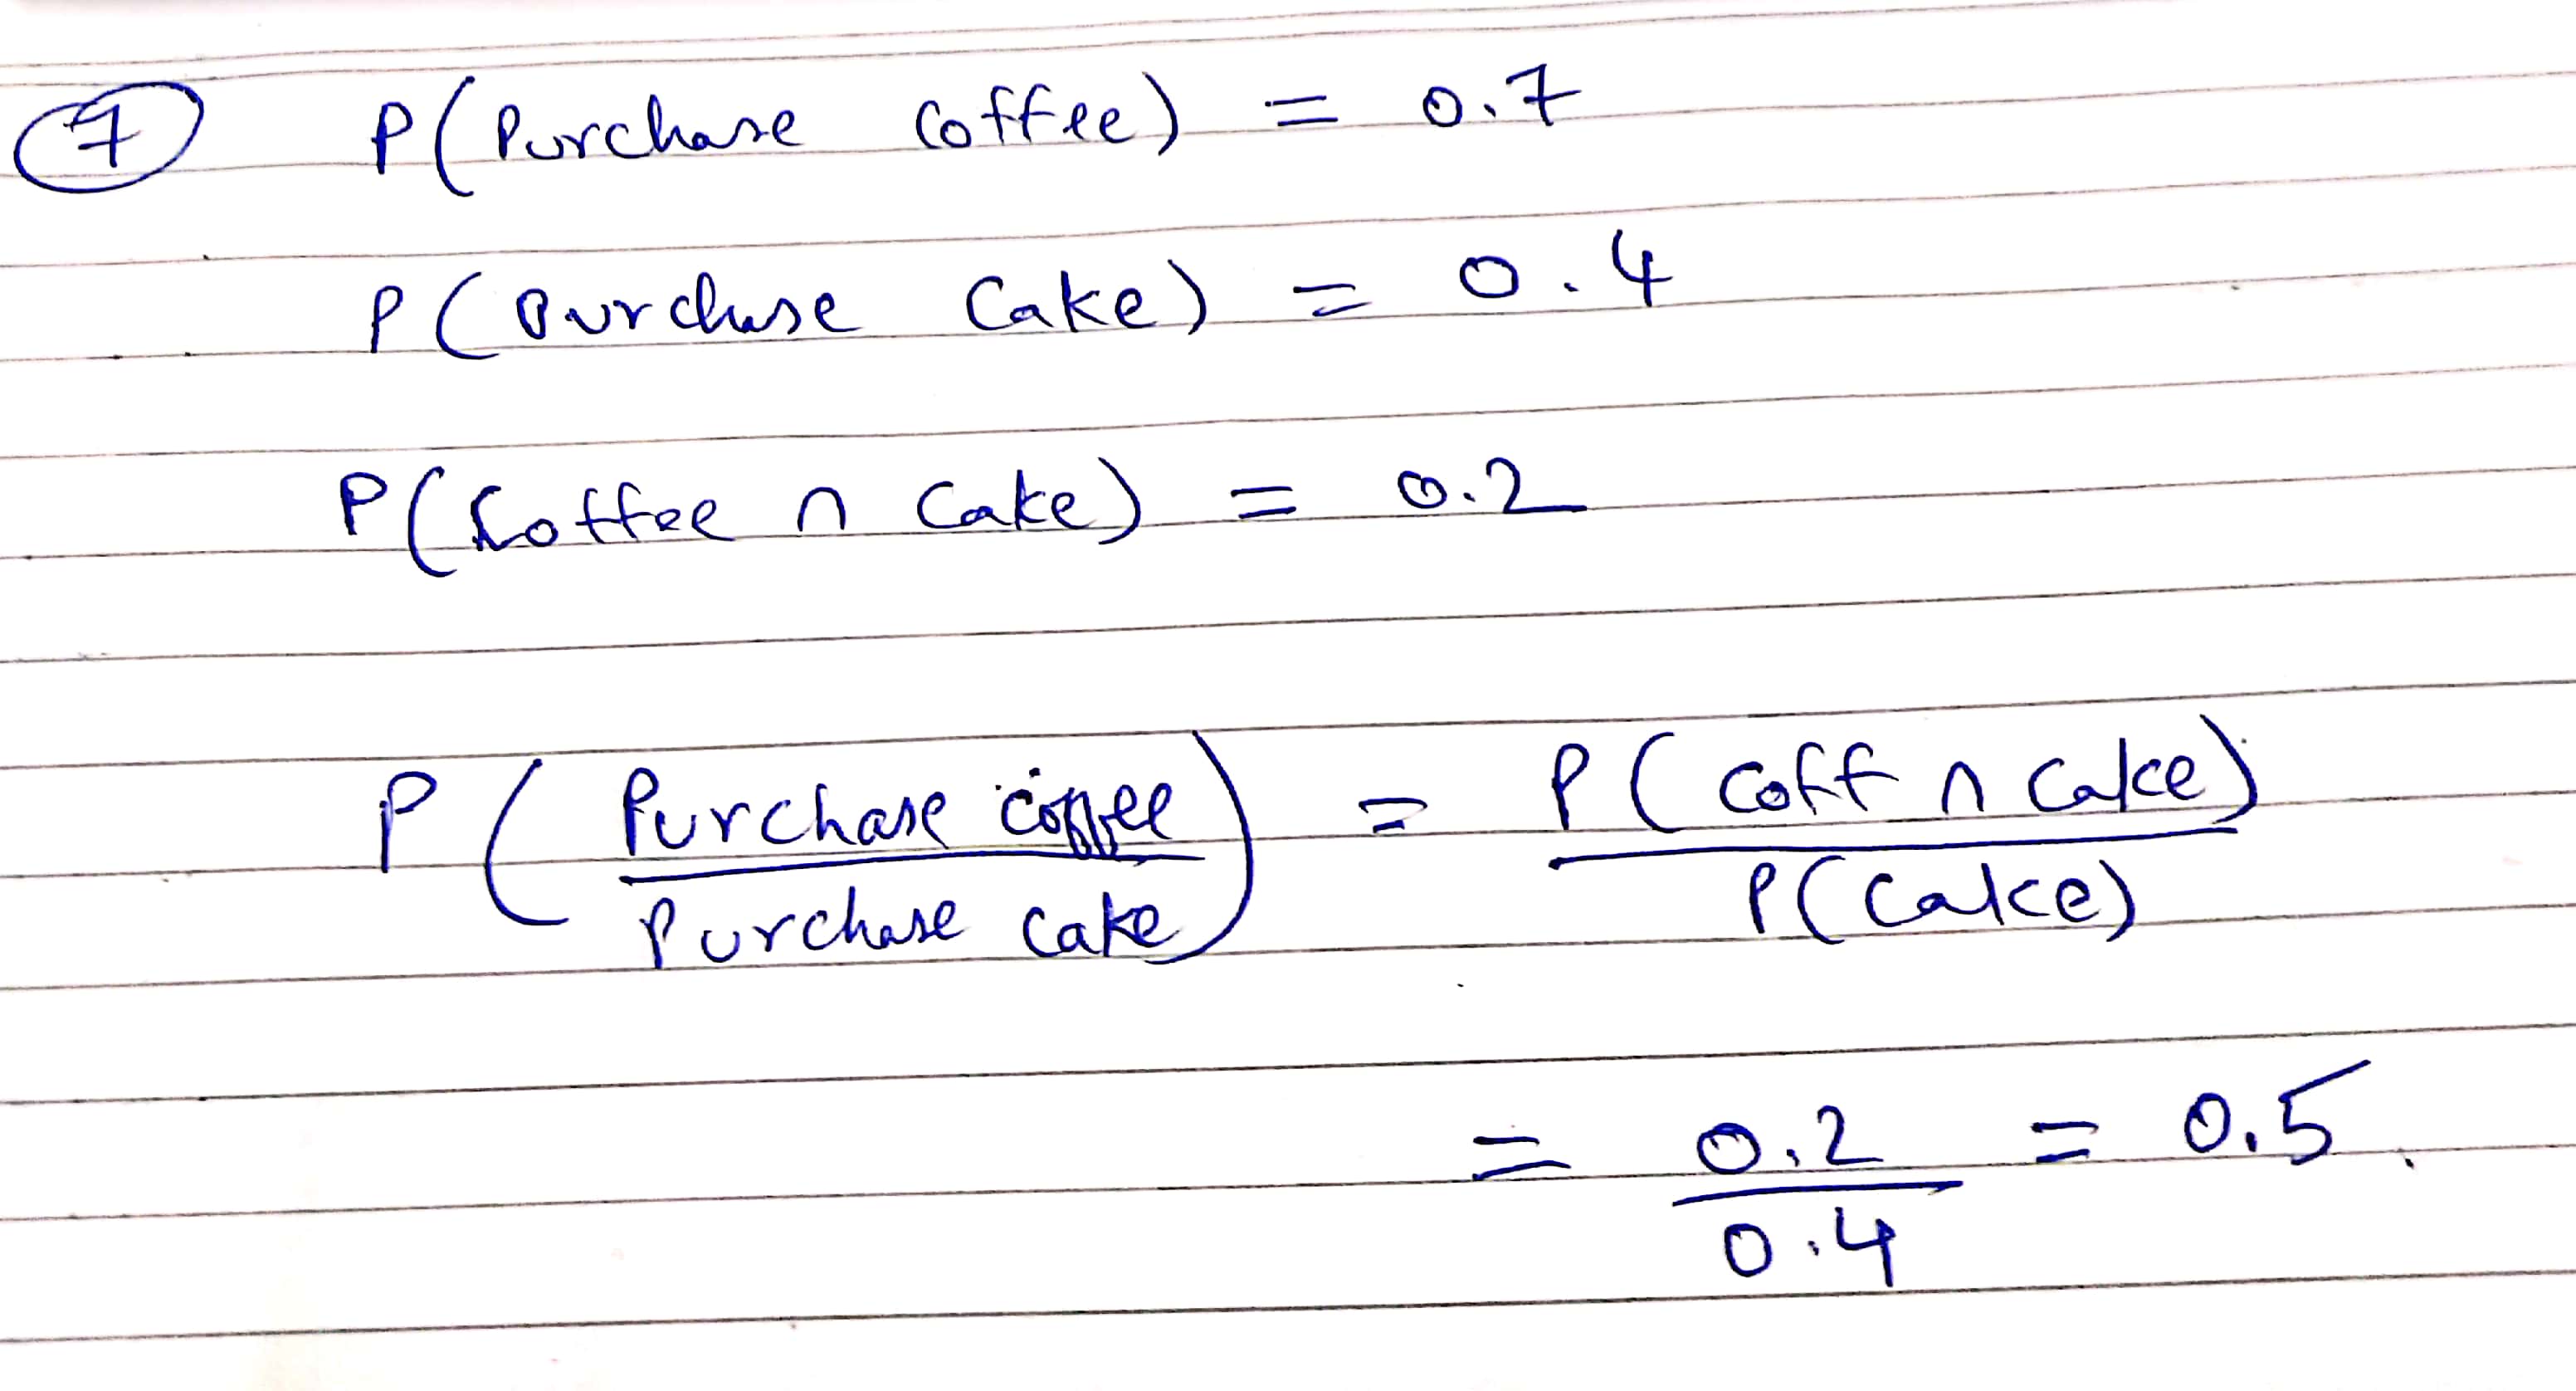 7 P(Purchase Coffee) = 0.7
P(Purchase Cake) = 0.4
P(Coffee ∩ Cake) = 0.2
P(Purchase coffee / Purchase cake) = P(Coff ∩ Cake) / P(Cake)
= 0.2 / 0.4 = 0.5